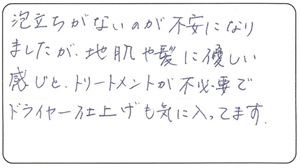 泡立ちがないのが不安になり
ましたが、地肌や髪に優しい
感じと、トリートメントが不必要で
ドライヤー仕上げも気に入ってます.